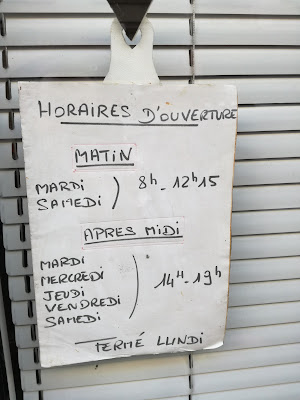 HORAIRES D'OUVERTURE
MATIN
MARDI
SAMEDI ) 8h - 12h15
APRES MIDI
MARDI
MERCREDI
JEUDI ) 14H - 19h
VENDREDI
SAMEDI
FERMÉ LUNDI